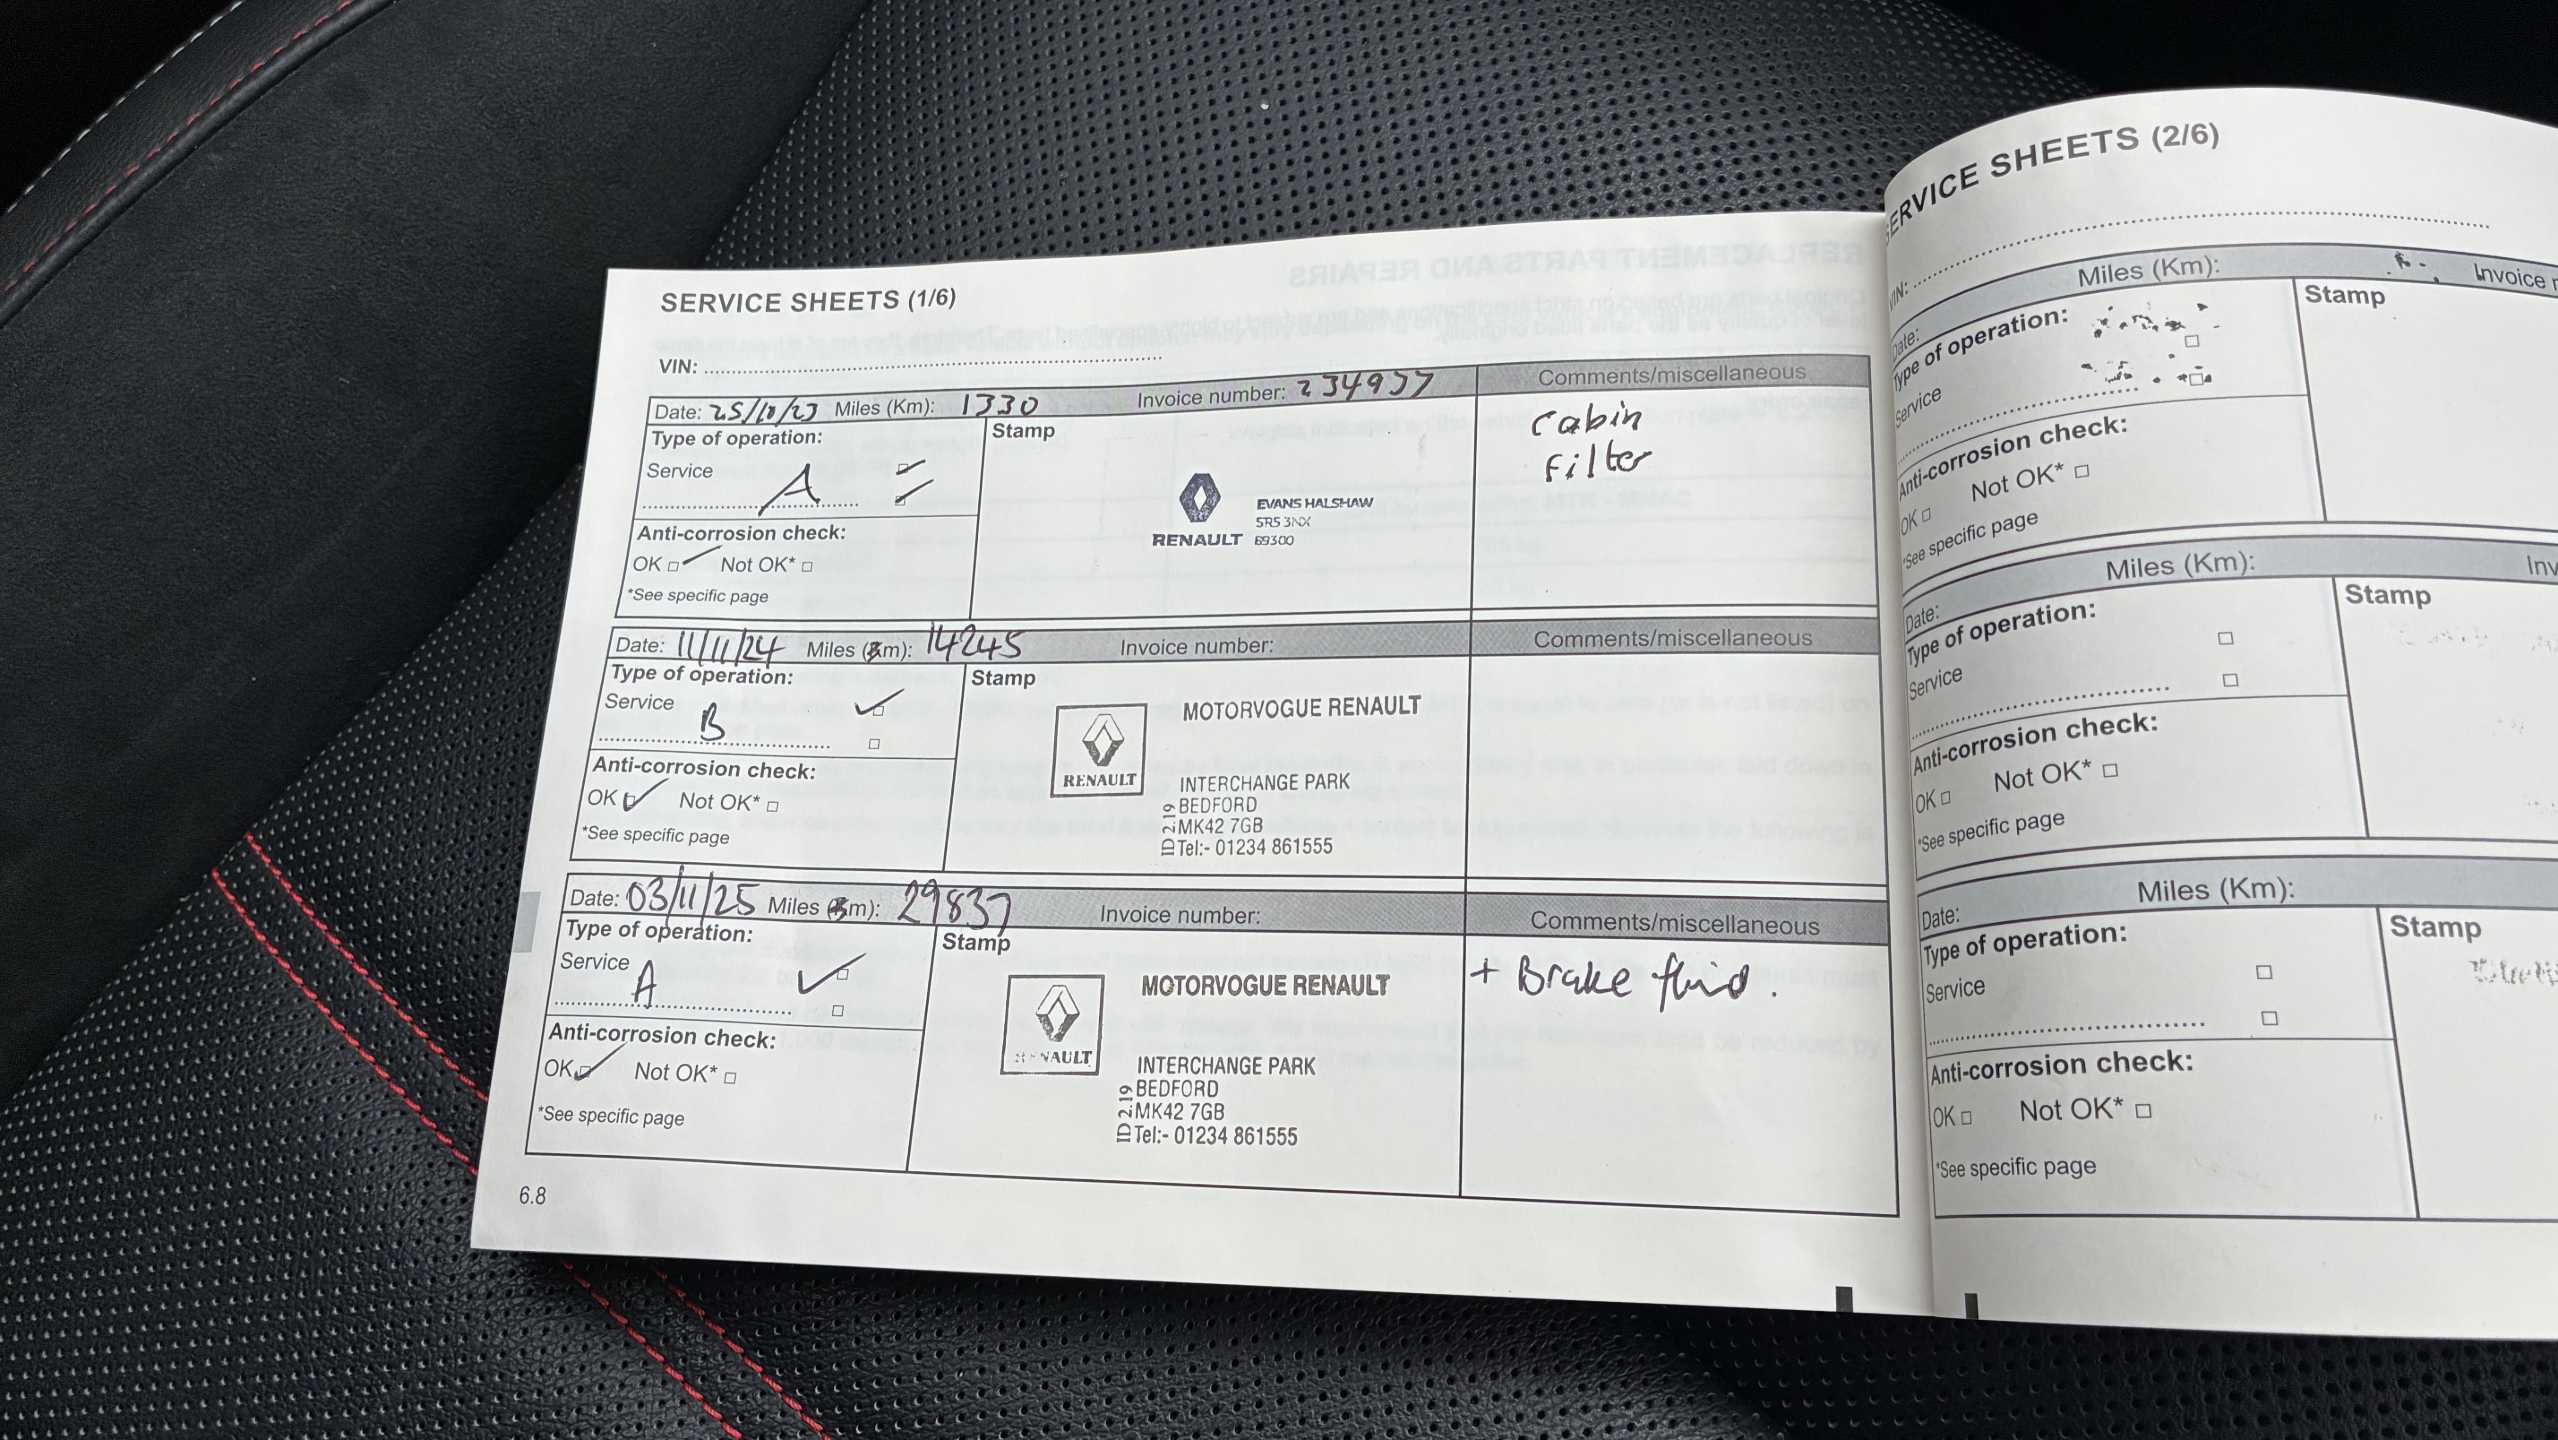 SERVICE SHEETS (1/6)
VIN:
Date: 25/10/23 Miles (Km): 1330 Invoice number: 234937 Comments/miscellaneous
Type of operation:
Service A
Stamp
Cabin
Filter
RENAULT
EVANS HALSHAW
SR5 3NX
69300
Anti-corrosion check:
OK Not OK*
*See specific page
Date: 11/11/24 Miles (Km): 14245 Invoice number: Comments/miscellaneous
Type of operation:
Service B
Stamp
RENAULT
MOTORVOGUE RENAULT
INTERCHANGE PARK
BEDFORD
MK42 7GB
Tel:- 01234 861555
ID 219
Anti-corrosion check:
OK Not OK*
*See specific page
Date: 03/11/25 Miles (Km): 29837 Invoice number: Comments/miscellaneous
Type of operation:
Service A
Stamp
+ Brake fluid.
RENAULT
MOTORVOGUE RENAULT
INTERCHANGE PARK
BEDFORD
MK42 7GB
Tel:- 01234 861555
ID 219
Anti-corrosion check:
OK Not OK*
*See specific page
6.8
SERVICE SHEETS (2/6)
VIN:
Date: Miles (Km): Invoice
Type of operation:
Service
Stamp
Anti-corrosion check:
OK Not OK*
*See specific page
Date: Miles (Km): Inv
Type of operation:
Service
Stamp
Anti-corrosion check:
OK Not OK*
*See specific page
Date: Miles (Km):
Type of operation:
Service
Stamp
Anti-corrosion check:
OK Not OK*
*See specific page